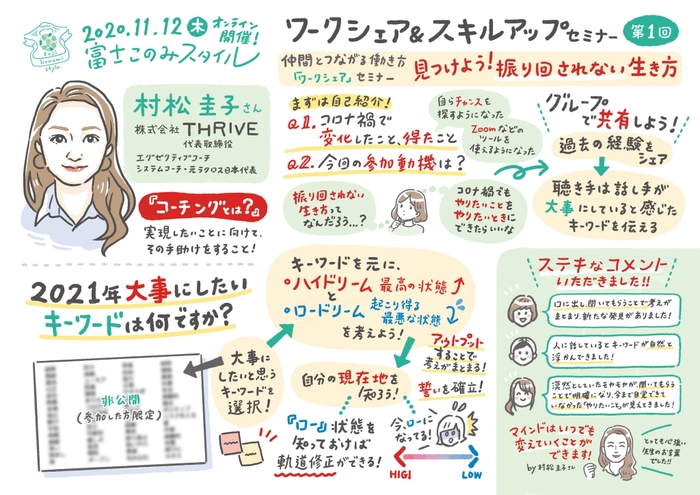 2020.11.12 木 オンライン開催!
富士このみスタイル
Fuji
konomi
style.
ワークシェア&スキルアップセミナー 第1回
仲間とつながる働き方
「ワークシェア」セミナー
見つけよう!振り回されない生き方
村松 圭子さん
株式会社 THRIVE
代表取締役
エグゼクティブコーチ
システムコーチ・元ラクロス日本代表
『コーチングとは?』
実現したいことに向けて、
その手助けをすること!
まずは自己紹介!
Q1.コロナ禍で
変化したこと、得たこと
Q2.今回の参加動機は?
自らチャンスを
探すようになった
Zoomなどの
ツールを
使えるようになった
振り回されない
生き方って
なんだろう…?
コロナ禍でも
やりたいことを
やりたいときに
できたらいいな
グループで
共有しよう!
過去の経験を
シェア
聴き手は話し手が
大事にしていると感じた
キーワードを伝える
2021年大事にしたい
キーワードは何ですか?
非公開
(参加した方限定)
大事に
したいと思う
キーワードを
選択!
キーワードを元に、
・ハイドリーム 最高の状態
と
・ロードリーム 起こり得る
最悪な状態
を考えよう!
アウトプット
することで
考えがまとまる!
誓いを確立!
自分の現在地を
知ろう!
『ロー』状態を
知っておけば
軌道修正ができる!
今、ローに
なってる!
HIGH
LOW
ステキなコメント
いただきました!!
口に出し、聞いてもらうことで考えが
まとまり、新たな発見がありました!
人に話しているとキーワードが自然と
浮かんできました!
漠然としていたモヤモヤが、聞いてもらう
ことで明確になり、今まで自覚できて
いなかった「やりたいこと」が見えてきました!
マインドはいつでも
変えていくことが
できます!
by 村松圭子さん
とっても心強い
先生のお言葉
でした!!